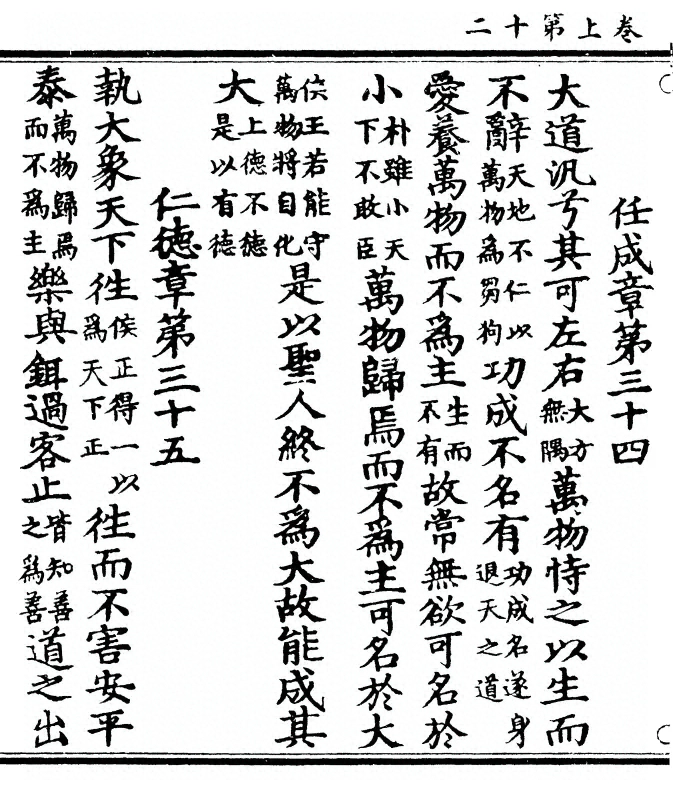 卷上第十二
任成章第三十四
大道汎兮其可左右大方無隅萬物恃之以生而
不辭天地不仁以萬物爲芻狗功成不名有功成名遂身退天之道
愛養萬物而不爲主生而不有故常無欲可名於
小朴雖小天下不敢臣萬物歸焉而不爲主可名於大
侯王若能守萬物將自化是以聖人終不爲大故能成其
大上德不德是以有德
仁德章第三十五
執大象天下往侯正得一以爲天下正往而不害安平
泰萬物歸焉而不爲主樂與餌過客止皆知善之爲善道之出